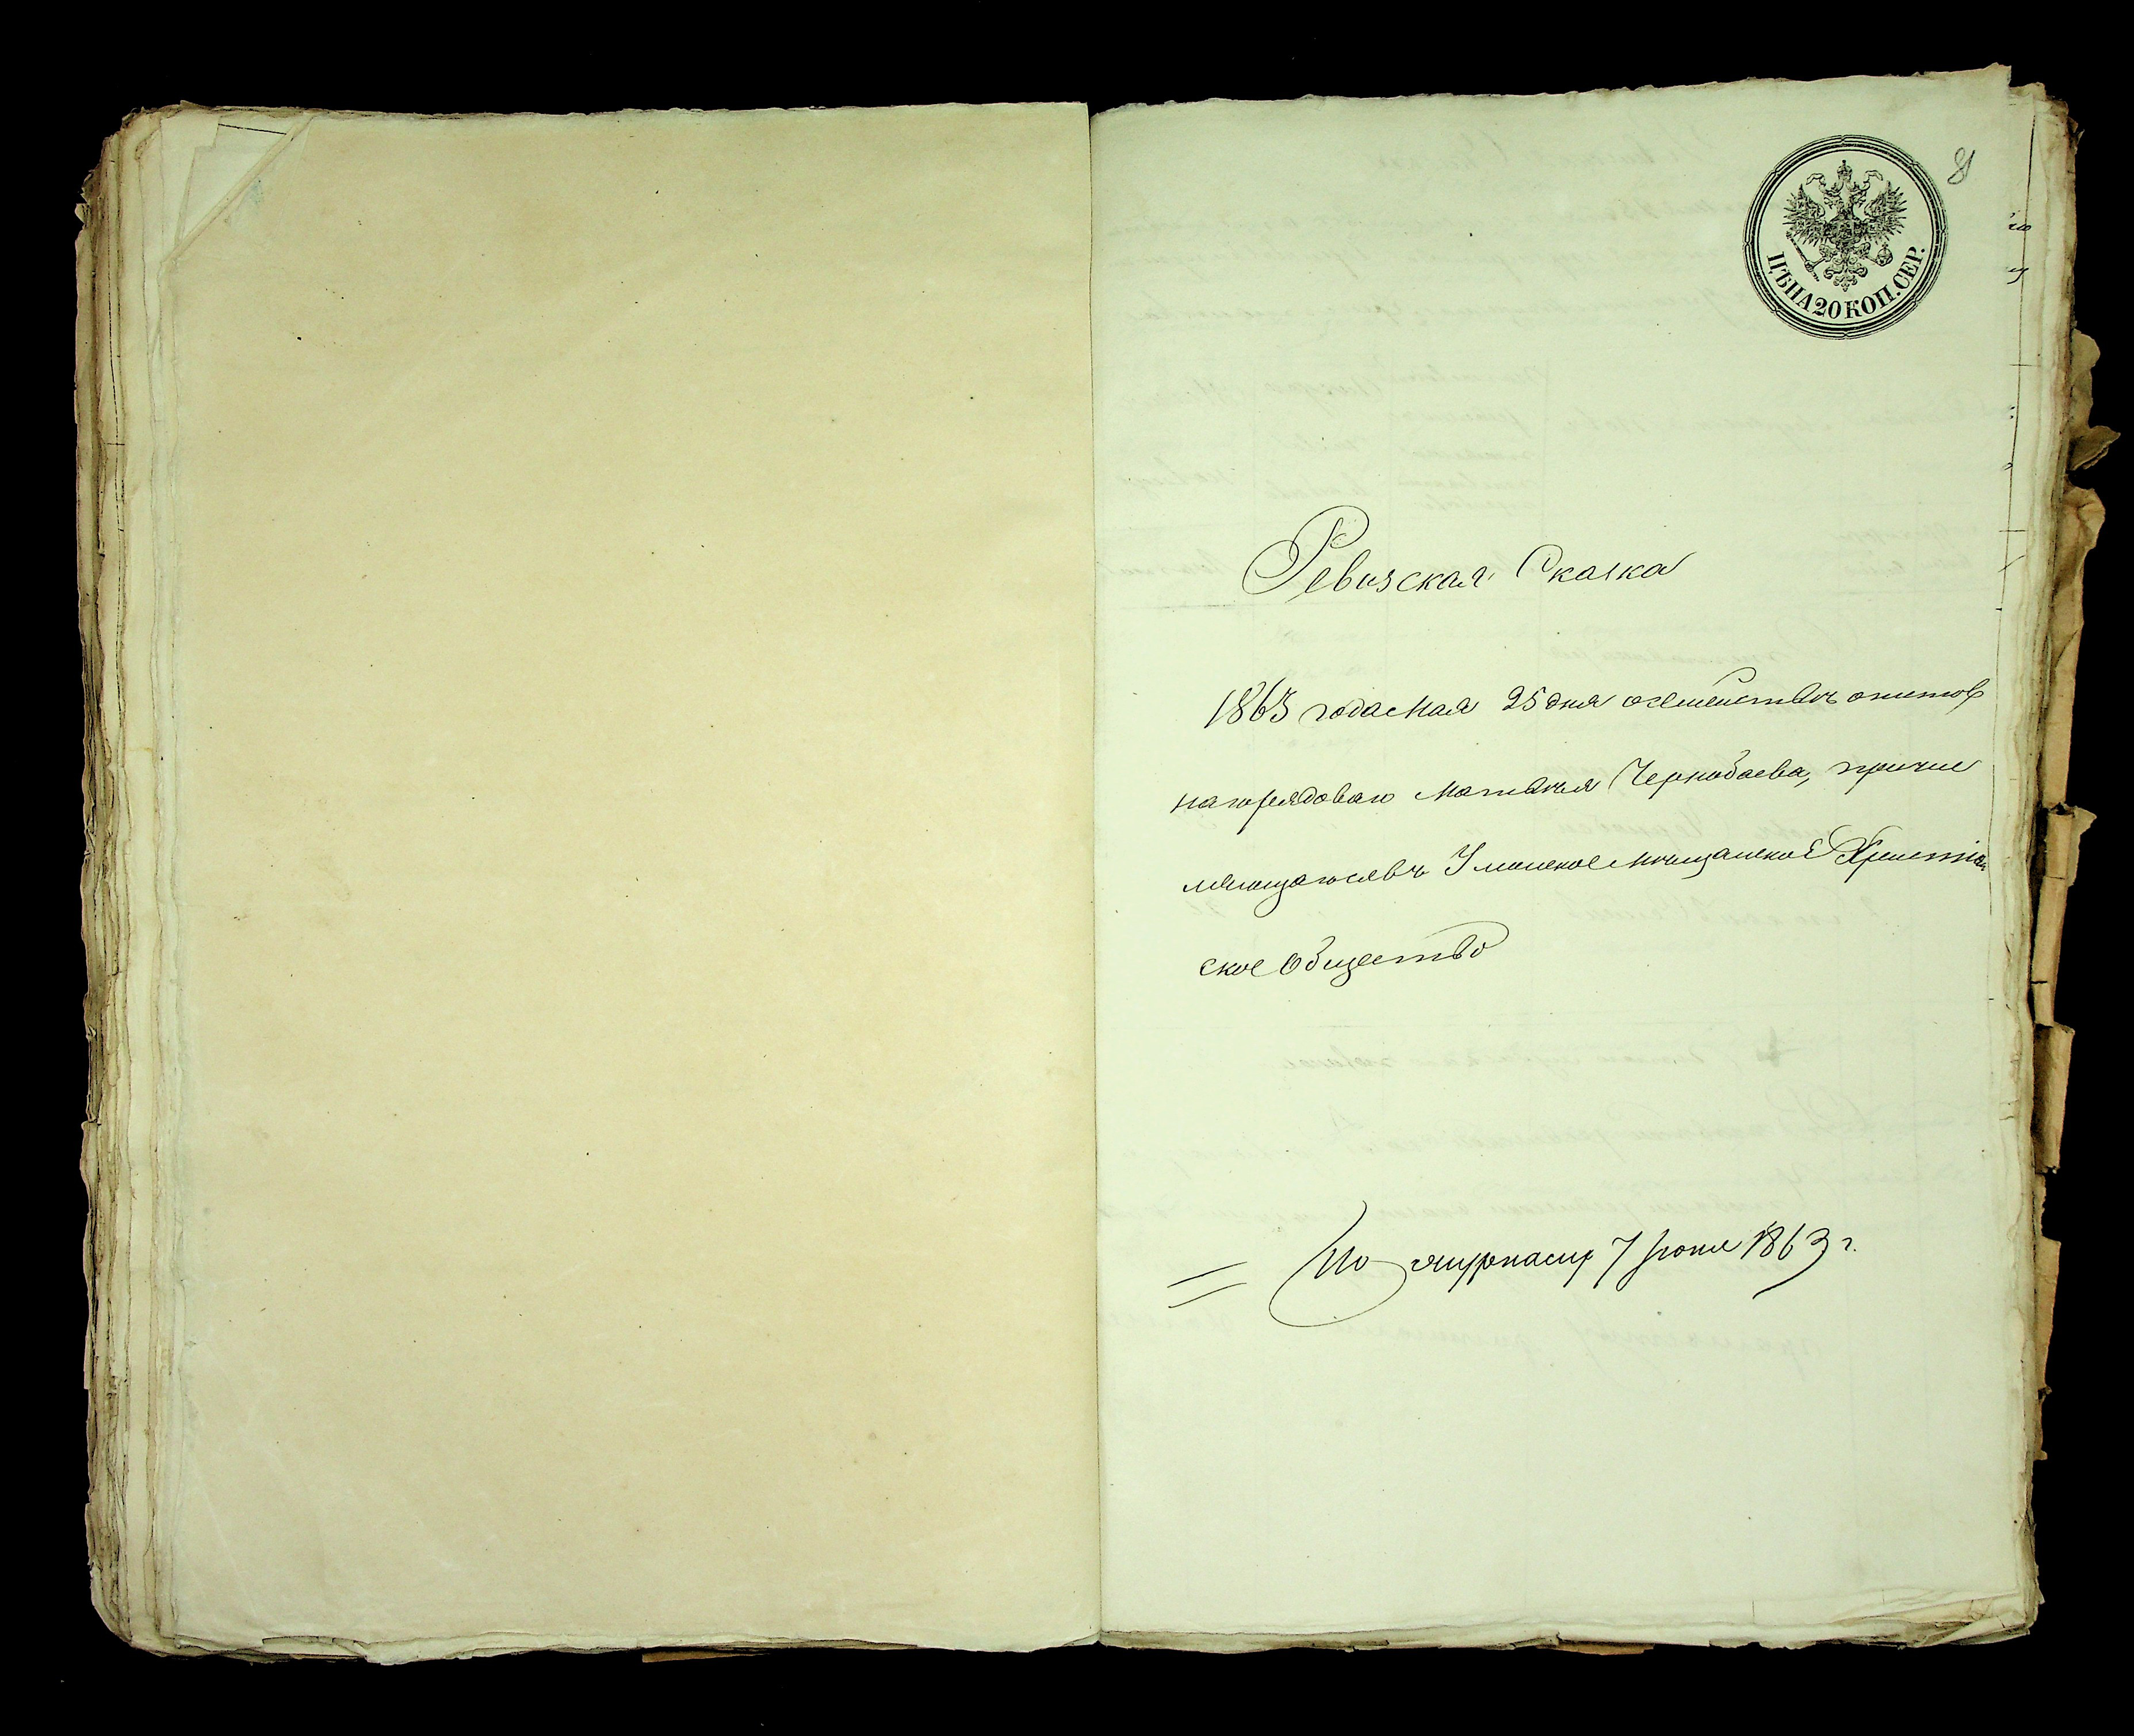 8
ЦѢНА 20 КОП. СЕР.
Ревизская Сказка
1863 года Мая 25 дня осемействѣ
нагорядоваго Матвѣя Чернобаева, причис
ляющагосявъ Уманское мѣщанское Христіан
ское Общество
По журналу 7 Іюня 1863 г.